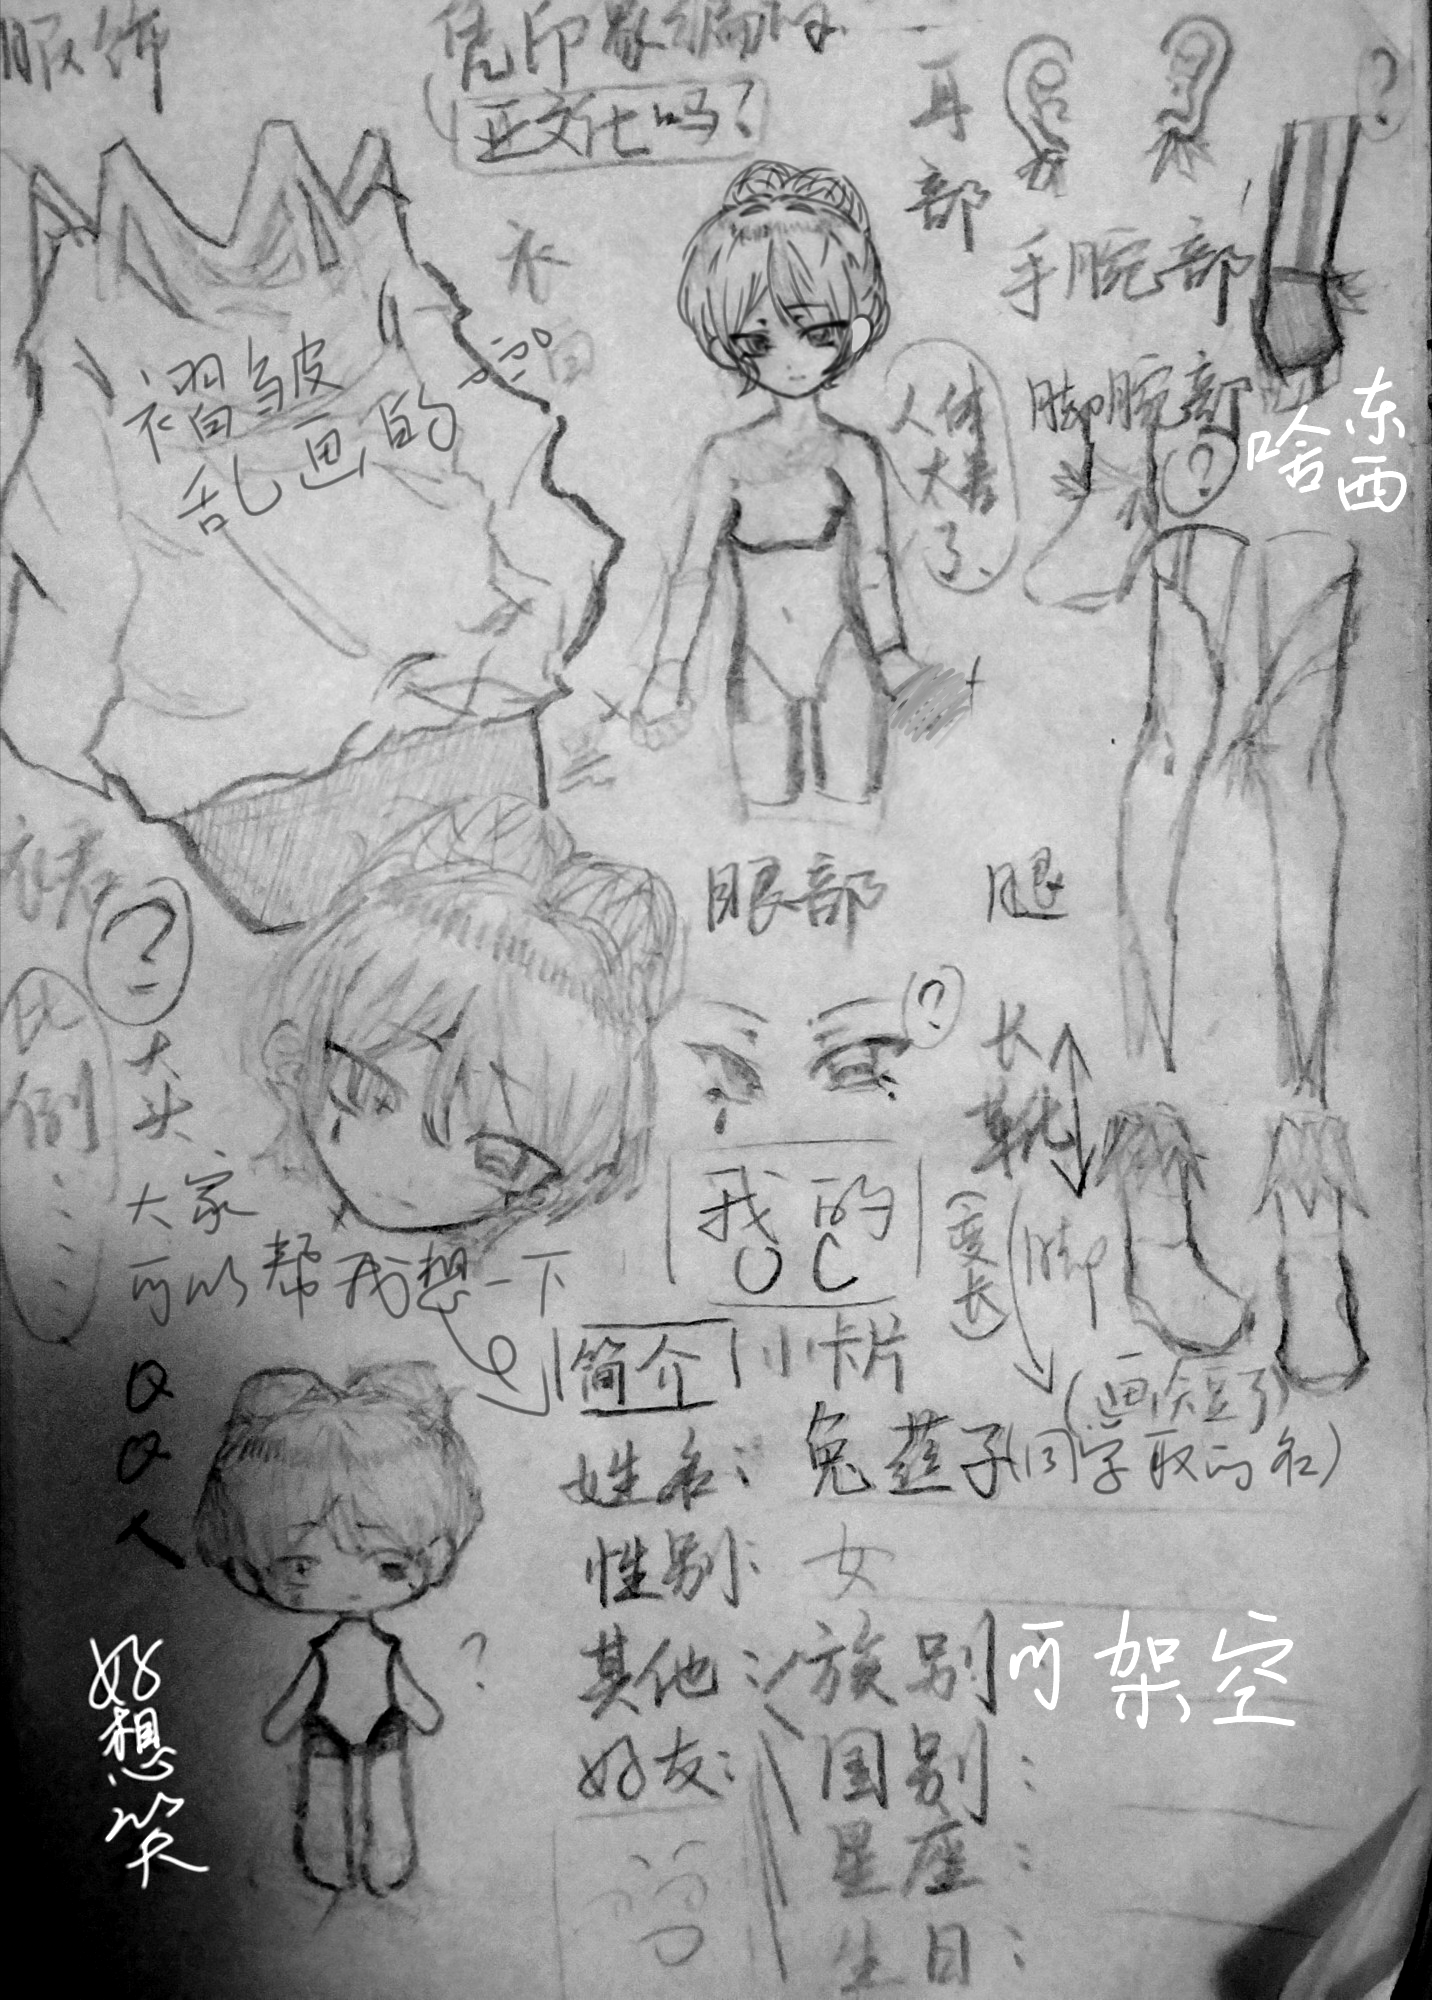 服饰
凭印象编的
亚文化吗？
耳部
？
手腕部
脚腕部
？
啥东西
衣
白
褶皱
乱画的
人体
大老
了、
黑
眼部
腿
？
？
比例
大头
大家
可以帮我想一下
QQ人
我的
OC
长靴
(变长)
脚
(画短了)
简介
小卡片
姓名：兔莲子(同学取的名)
性别：女
其他：族别 可架空
好友：国别：
星座：
生日：
？
好想笑